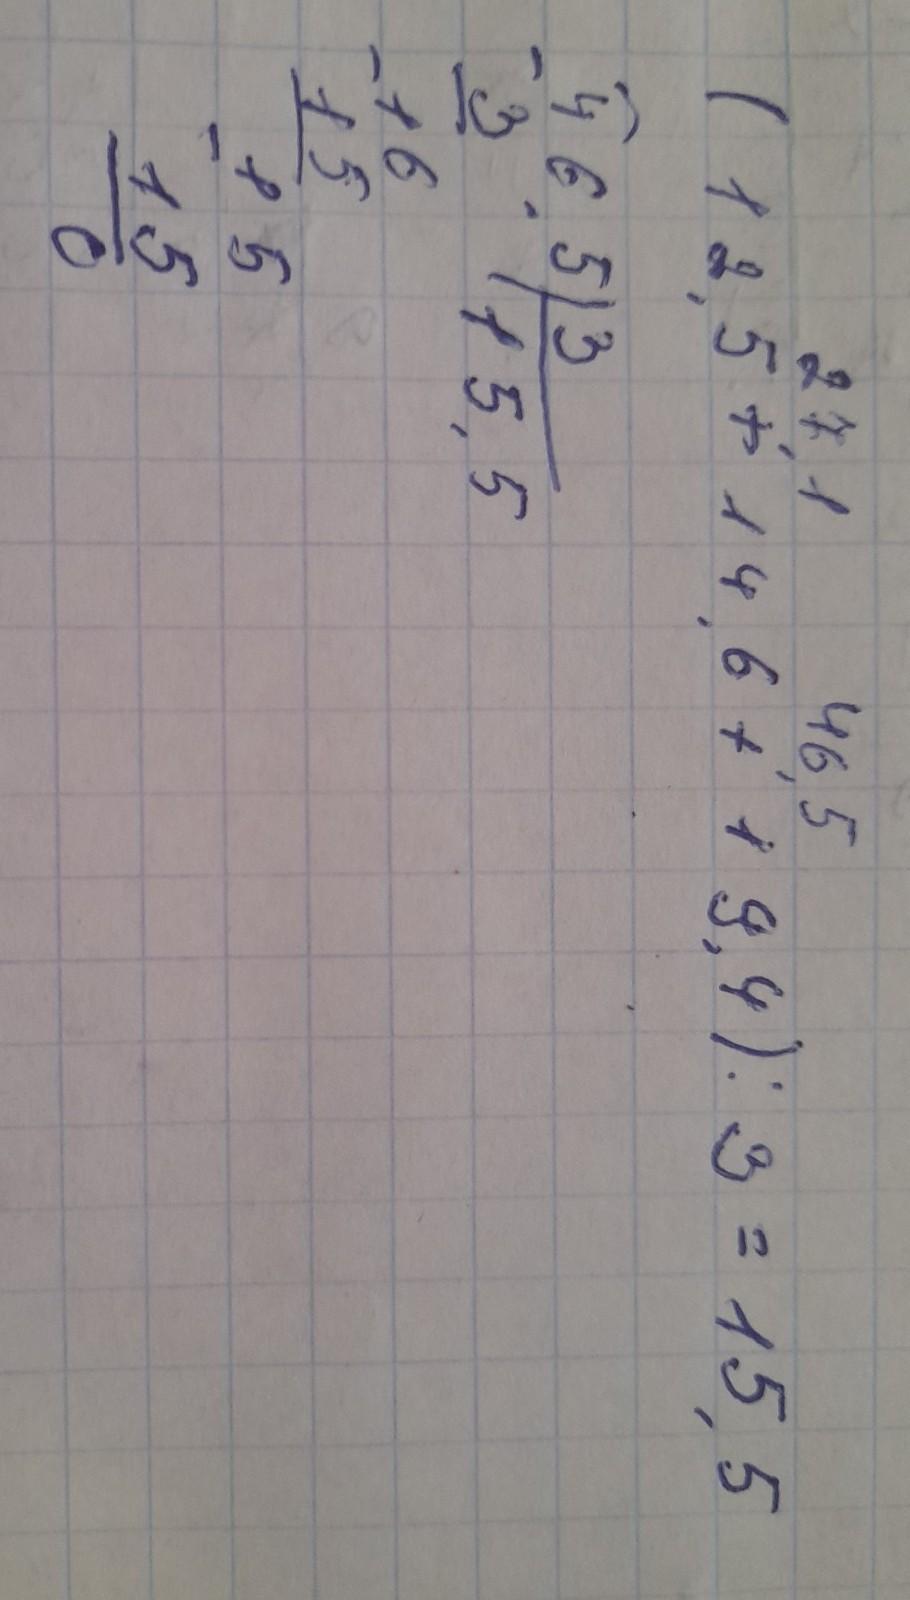 27,1 46,5
(12,5+14,6+19,4):3=15,5
46,5|3
-3 15,5
-16
15
-15
15
0